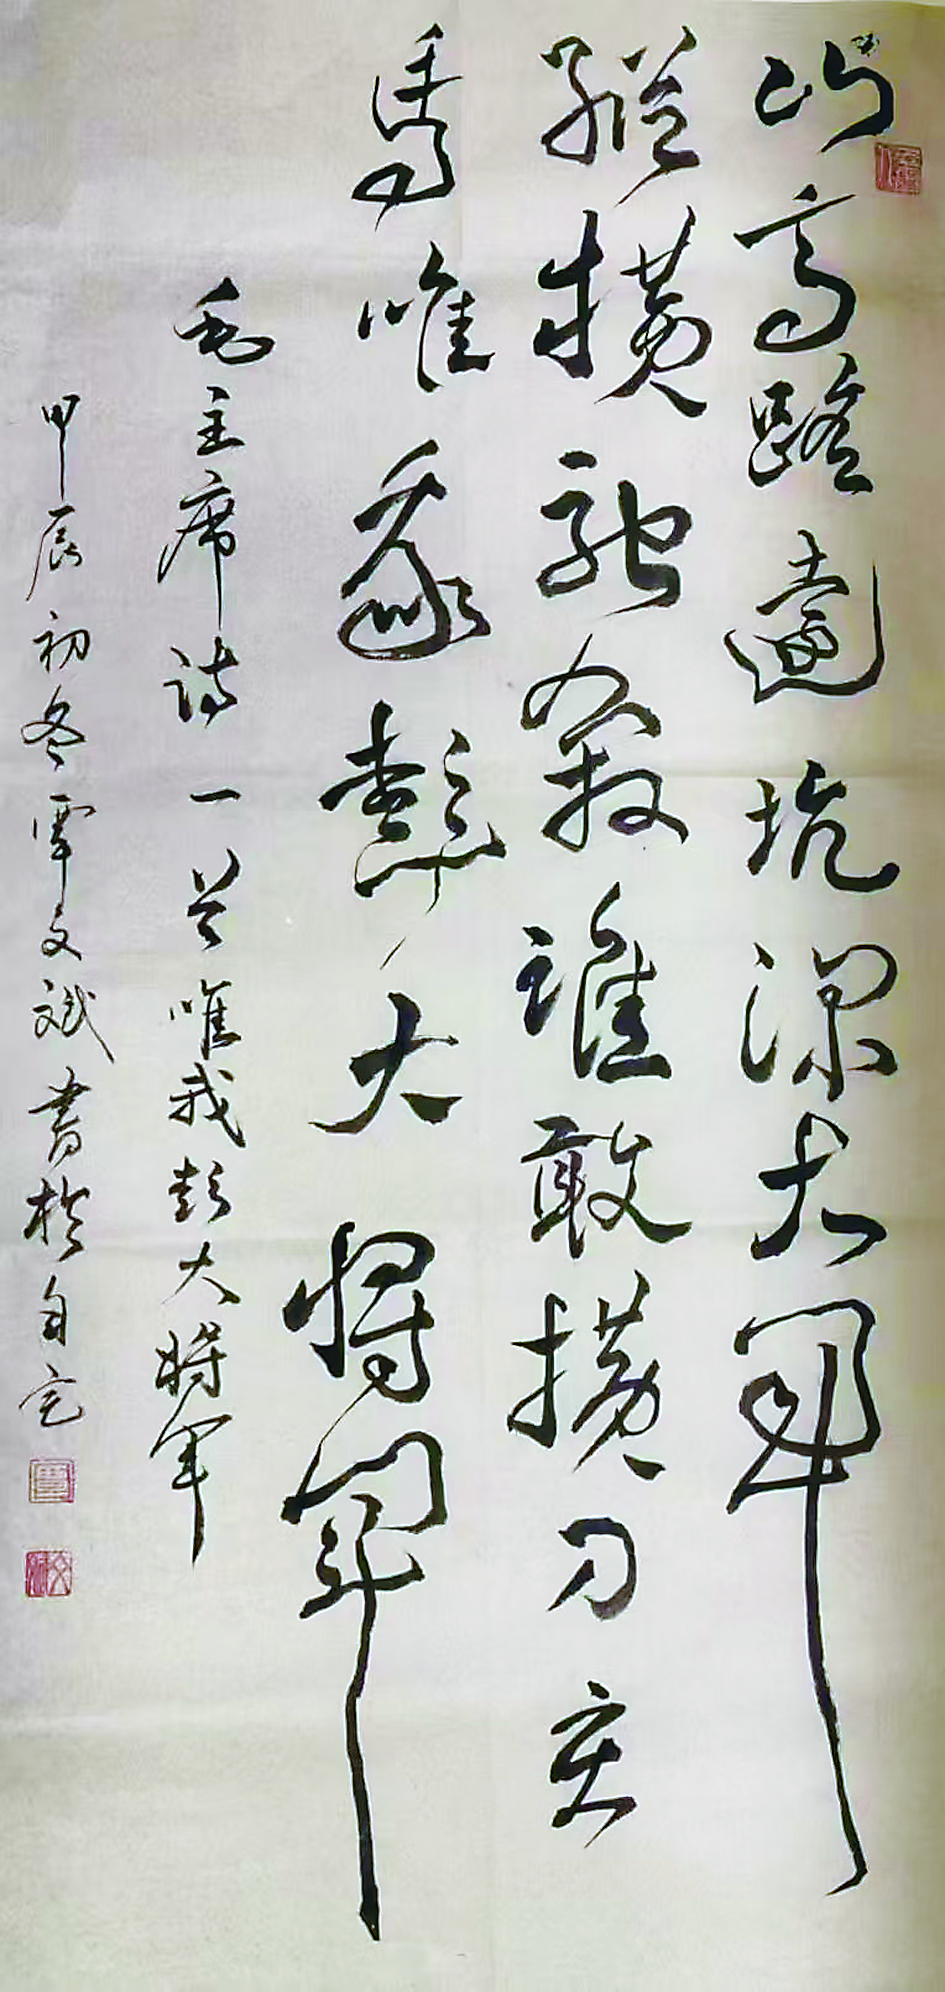 山高路遠坑深大軍
縱橫馳 誰敢橫刀
馬唯我彭大將軍
毛主席詩一首唯我彭大將軍
甲辰初冬覃文斌書於自宅